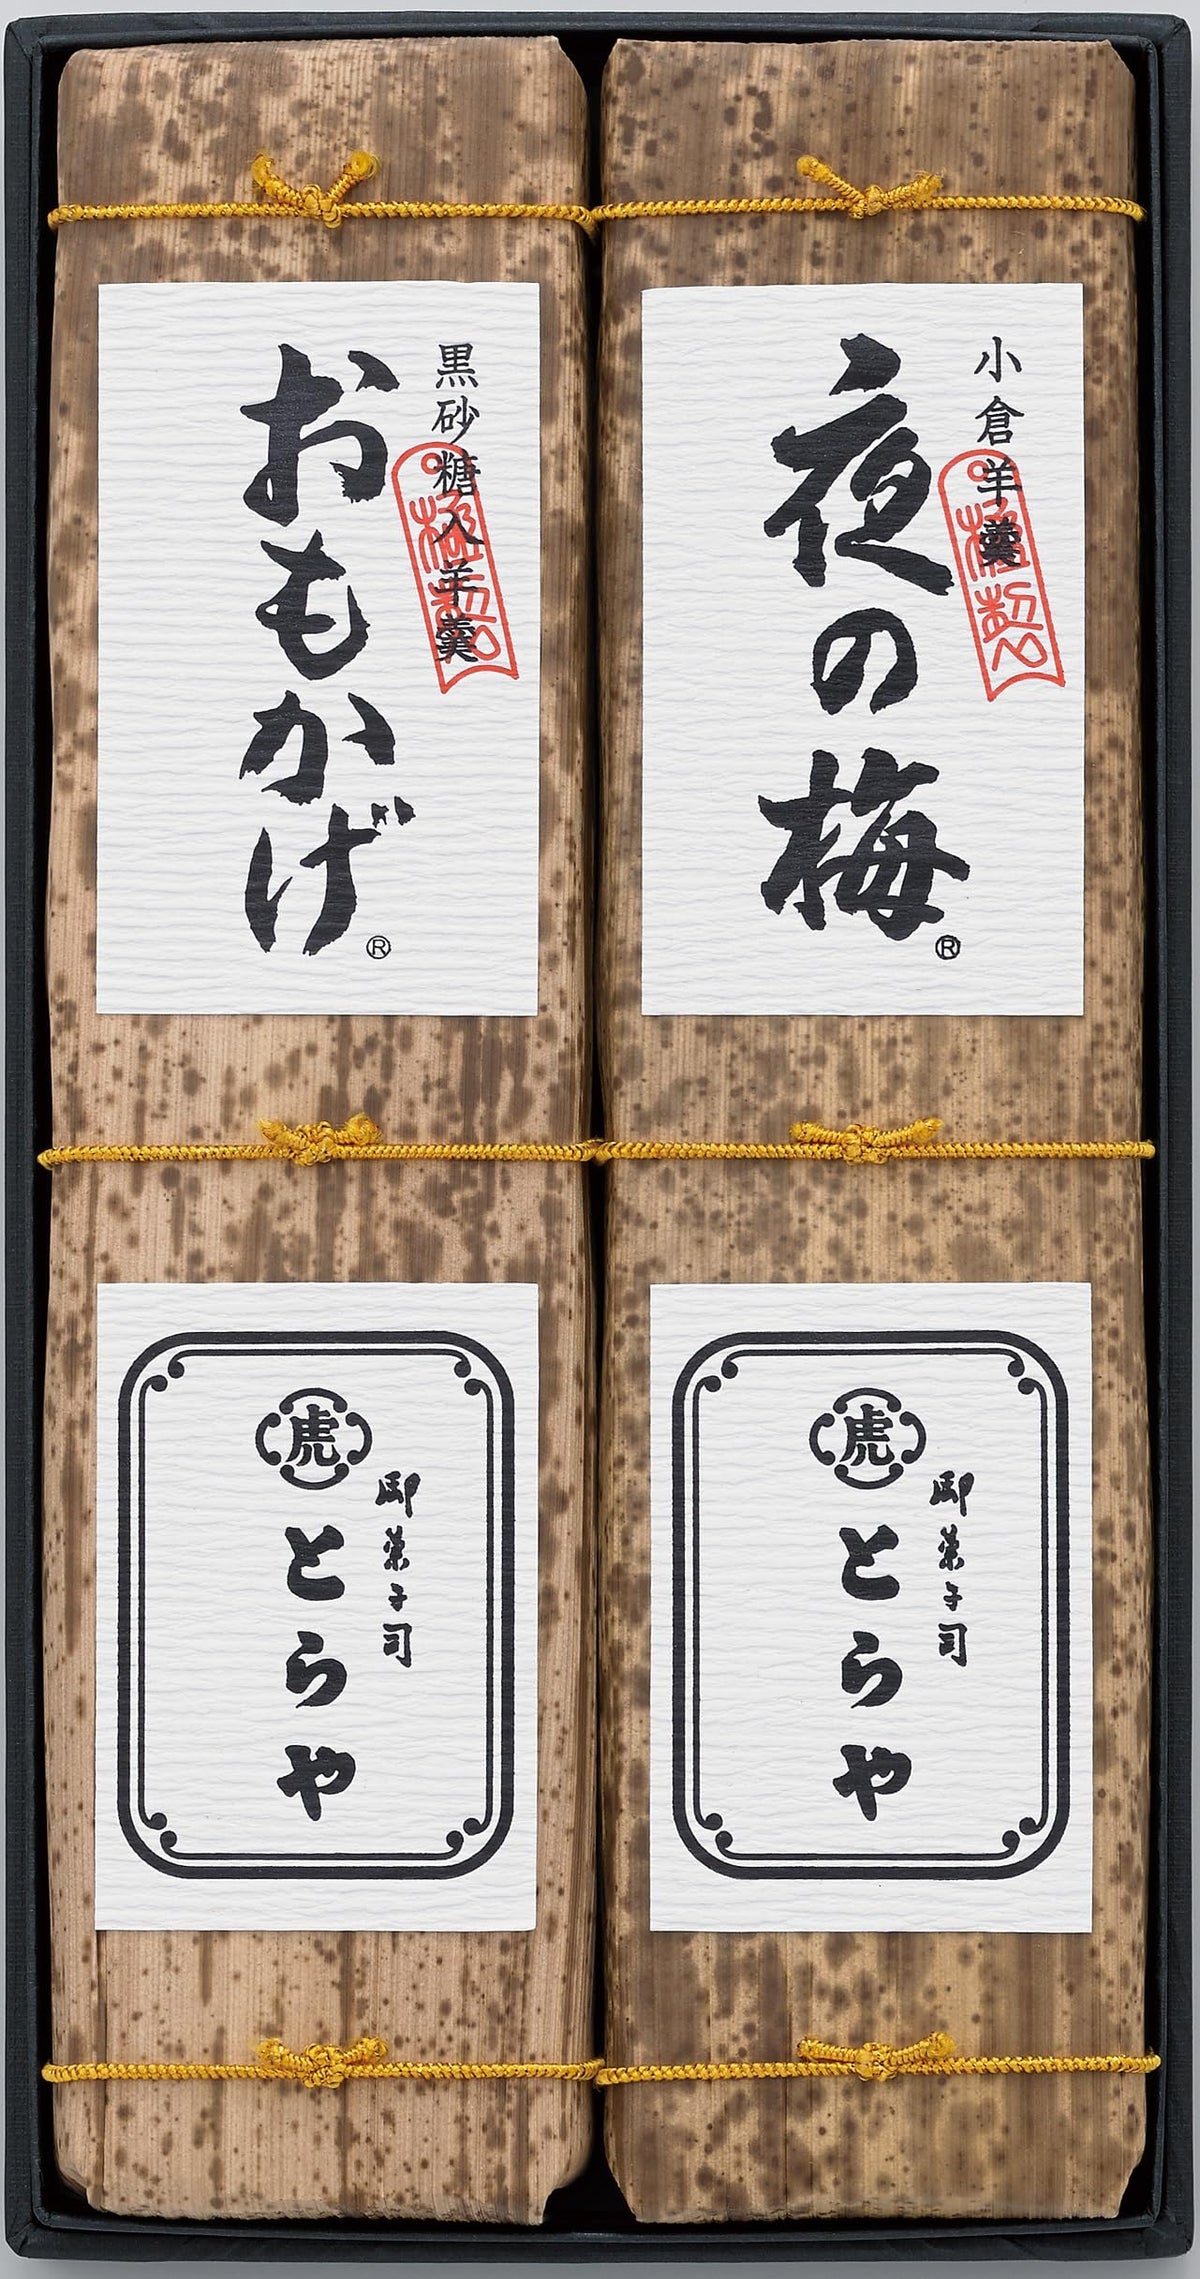 小倉羊羹
極製
夜の梅
®
黒砂糖入羊羹
極製
おもかげ
®
虎
御菓子司
とらや
虎
御菓子司
とらや